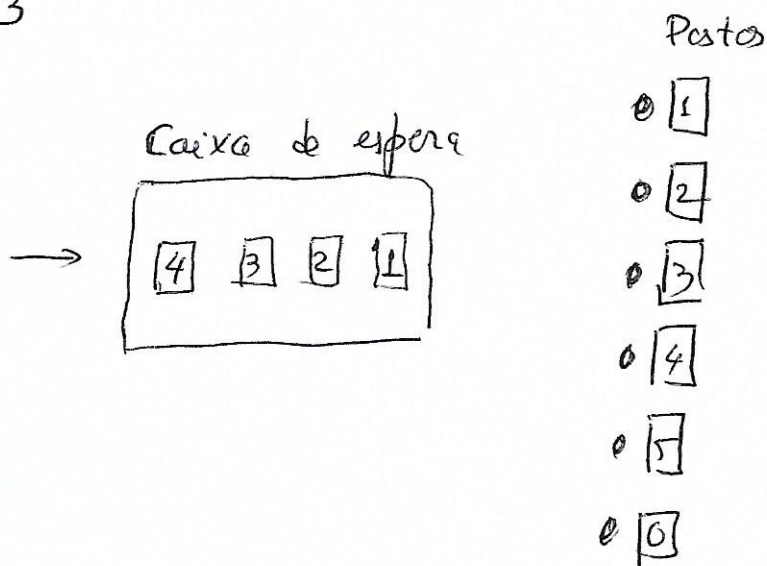 3
Postos
Caixa de espera
4 3 2 1
1
2
3
4
5
0